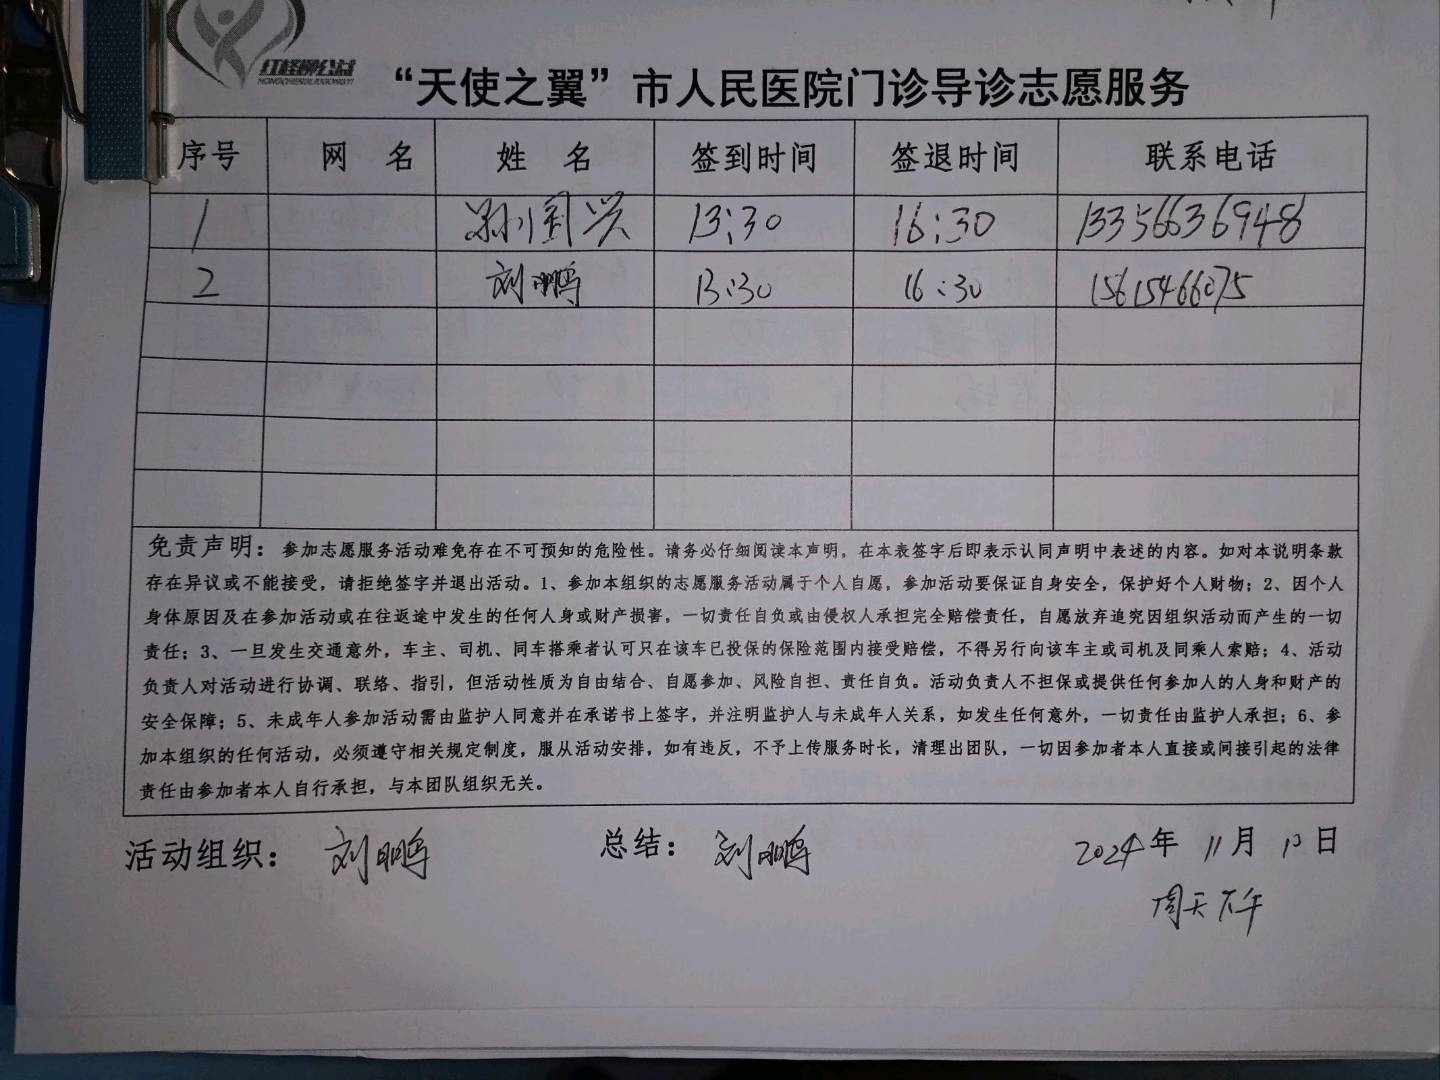 “天使之翼”市人民医院门诊导诊志愿服务
序号 网 名 姓 名 签到时间 签退时间 联系电话
1 孙国兴 13:30 16:30 13356636948
2 刘鹏 13:30 16:30 15615466075
免责声明：参加志愿服务活动难免存在不可预知的危险性。请务必仔细阅读本声明，在本表签字后即表示认同声明中表述的内容。如对本说明条款
存在异议或不能接受，请拒绝签字并退出活动。1、参加本组织的志愿服务活动属于个人自愿，参加活动要保证自身安全，保护好个人财物；2、因个人
身体原因及在参加活动或在往返途中发生的任何人身或财产损害，一切责任自负或由侵权人承担完全赔偿责任，自愿放弃追究因组织活动而产生的一切
责任；3、一旦发生交通意外，车主、司机、同车搭乘者认可只在该车已投保的保险范围内接受赔偿，不得另行向该车主或司机及同乘人索赔；4、活动
负责人对活动进行协调、联络、指引，但活动性质为自由结合、自愿参加、风险自担、责任自负。活动负责人不担保或提供任何参加人的人身和财产的
安全保障；5、未成年人参加活动需由监护人同意并在承诺书上签字，并注明监护人与未成年人关系，如发生任何意外，一切责任由监护人承担；6、参
加本组织的任何活动，必须遵守相关规定制度，服从活动安排，如有违反，不予上传服务时长，清理出团队，一切因参加者本人直接或间接引起的法律
责任由参加者本人自行承担，与本团队组织无关。
活动组织： 刘鹏 总结： 刘鹏 2024年 11月 10日
周天下午